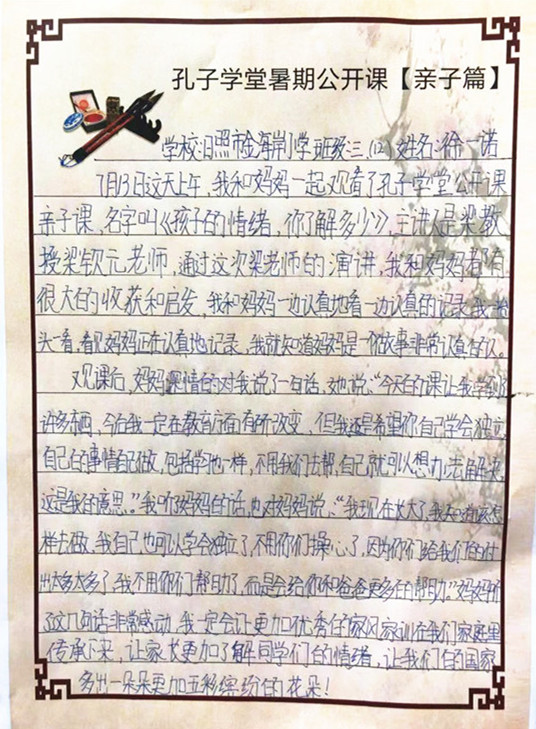 孔子学堂暑期公开课【亲子篇】
学校:日照市金海岸小学班级:三.(12)姓名:徐一诺
7月13日这天上午,我和妈妈一起观看了孔子学堂公开课
亲子课,名字叫《孩子的情绪,你了解多少》,主讲人是梁教
授梁钦元老师,通过这次梁老师的演讲,我和妈妈都有
很大的收获和启发,我和妈妈一边认真地看一边认真的记录,我一抬
头一看,看见妈妈正在认真地记录,我就知道妈妈是一个做事非常认真的人。
观课后,妈妈深情的对我说了一句话,她说:“今天的课让我学到了
许多东西,今后我一定在教育方面有所改变,但我还是希望你自己学会独立,
自己的事情自己做,包括学习也一样,不用我们去帮,自己就可以想办法去解决,
这是我的意思。”我听妈妈的话,也对妈妈说:“我现在长大了,我知道该怎
样去做,我自己也可以学会独立了,不用你们操心了,因为你们给我们的付
出太多太多了,我不用你们帮助了,而是会给你和爸爸更多的帮助。”妈妈听
了这几句话非常感动,我一定会让更加优秀的家风家训在我们家庭里
传承下来,让家长更加了解同学们的情绪,让我们的国家
多出一朵朵更加五彩缤纷的花朵!